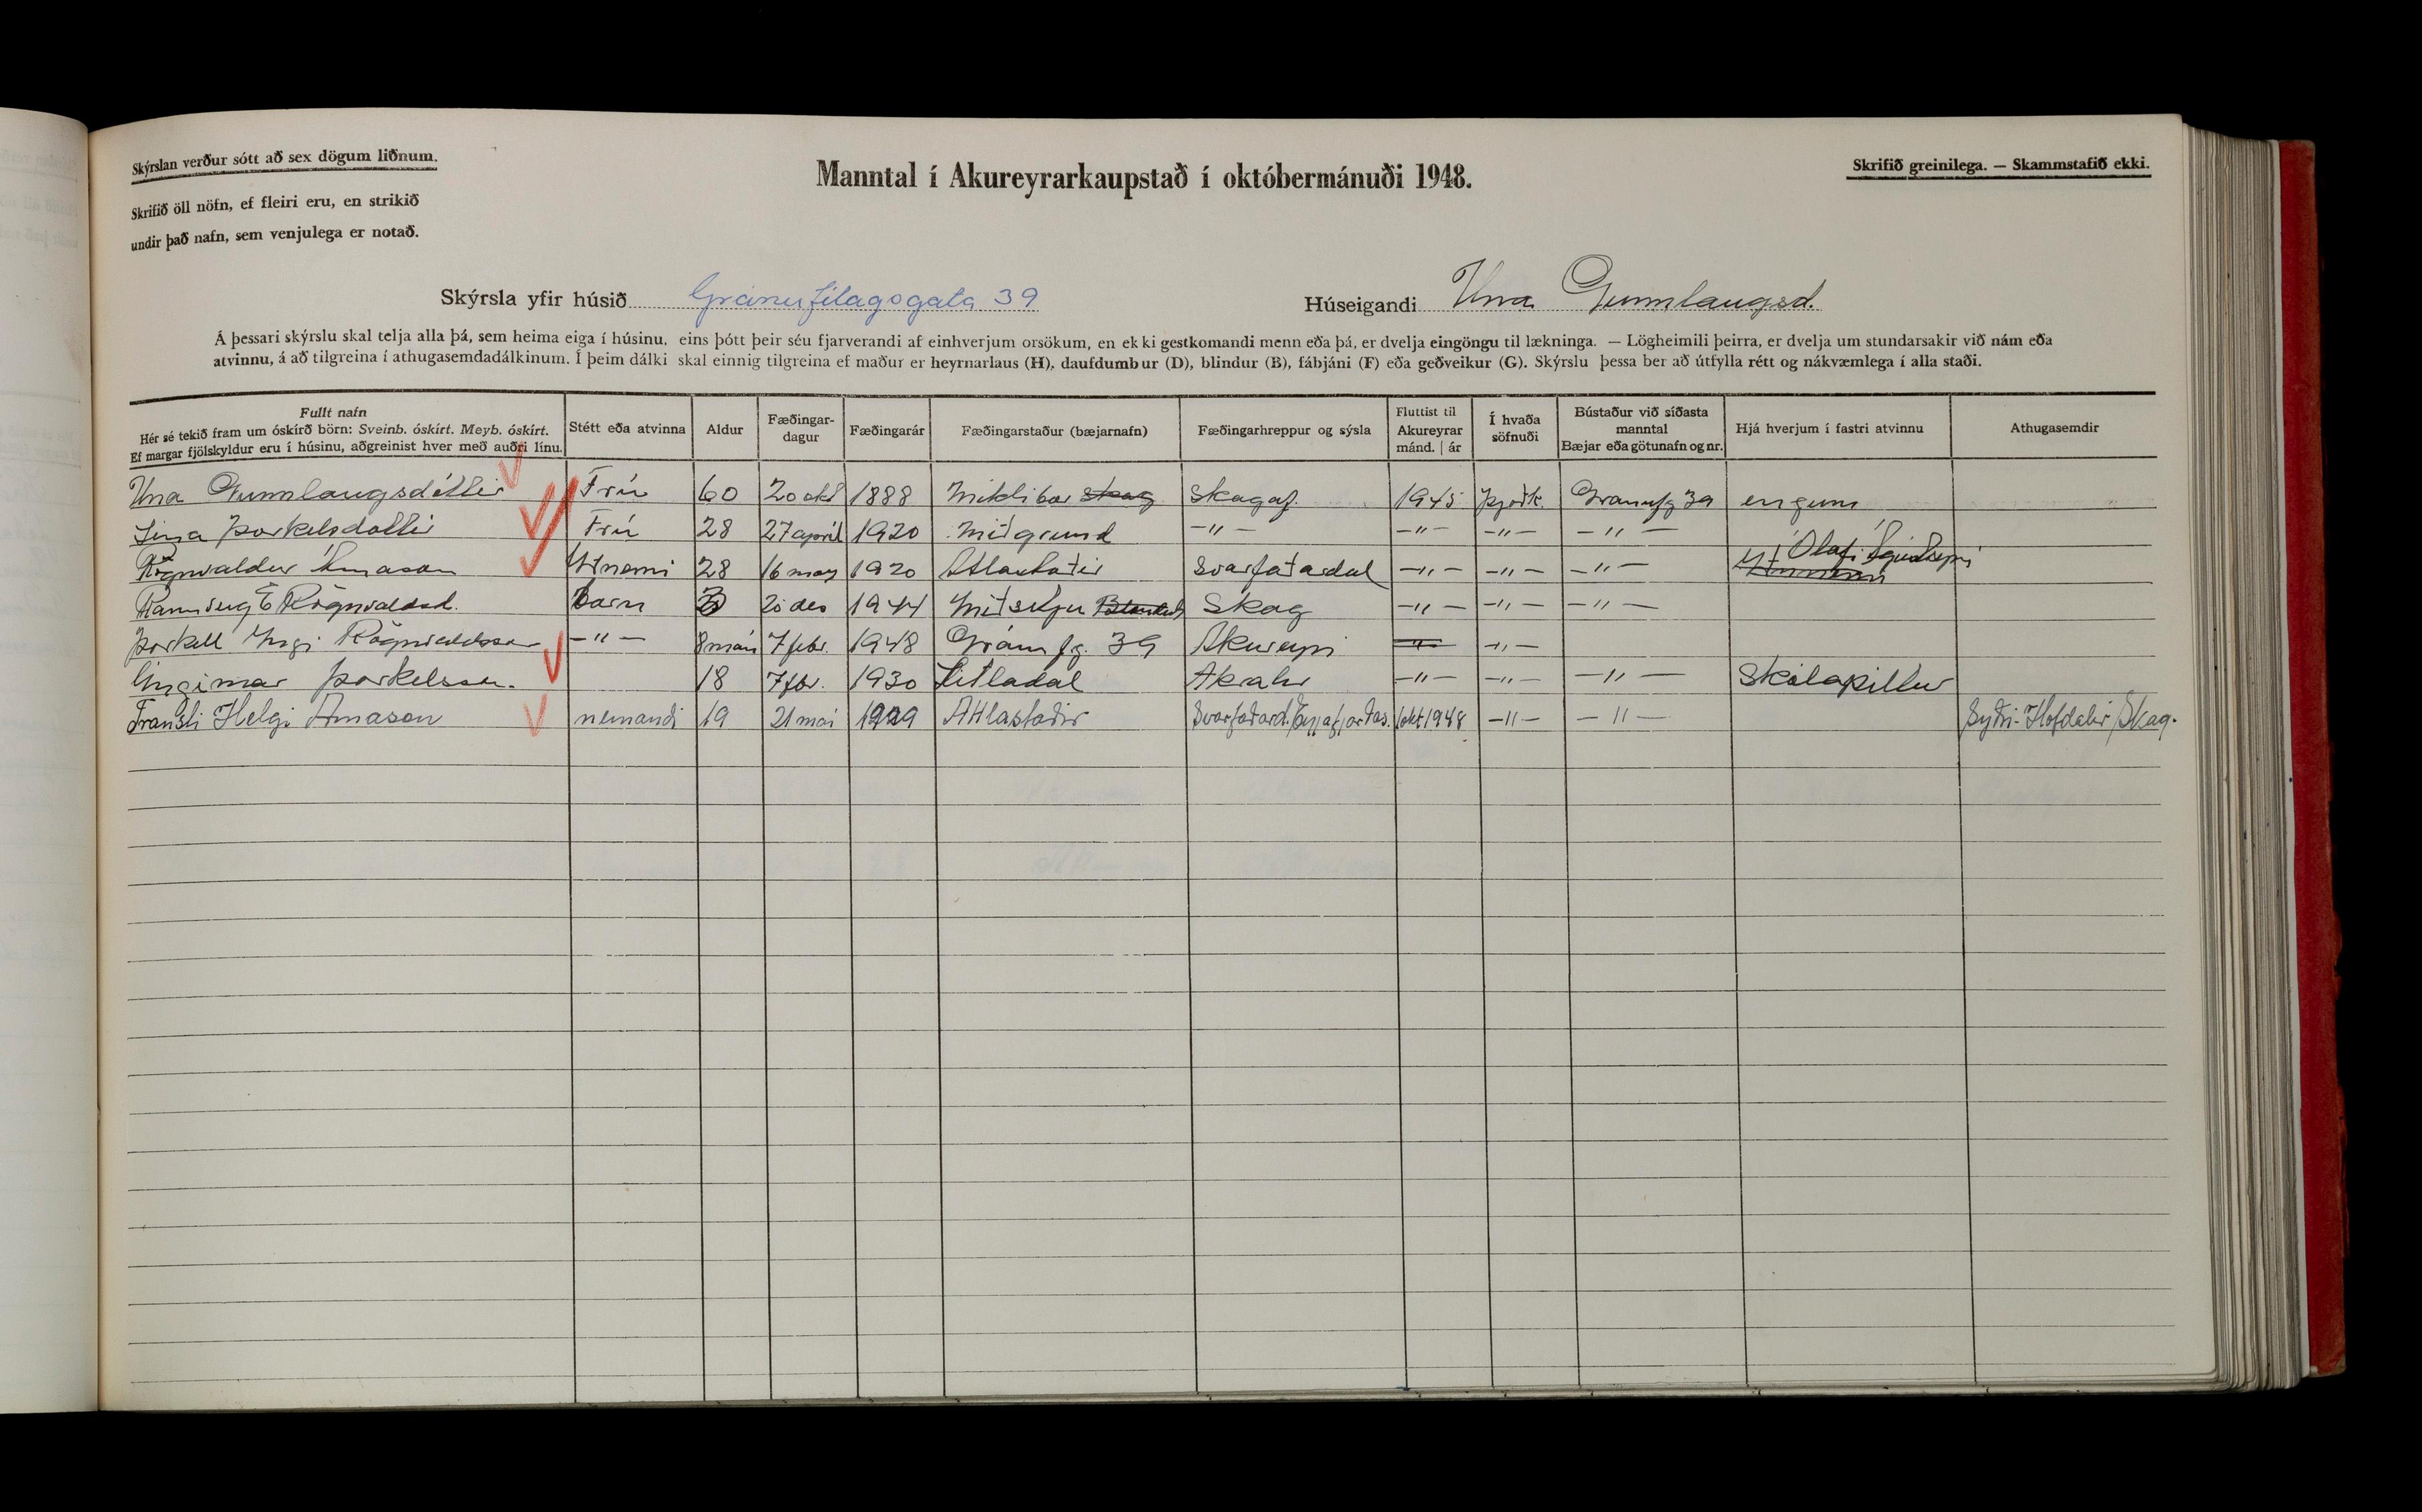 Skýrslan verður sótt að sex dögum liðnum.
Manntal í Akureyrarkaupstað í októbermánuði 1948.
Skrifið greinilega. — Skammstafið ekki.
Skrifið öll nöfn, ef fleiri eru, en strikið
undir það nafn, sem venjulega er notað.
Skýrsla yfir húsið Gránufélagsgata 39 Húseigandi Una Gunnlaugsd.
Á þessari skýrslu skal telja alla þá, sem heima eiga í húsinu, eins þótt þeir séu fjarverandi af einhverjum orsökum, en ekki gestkomandi menn eða þá, er dvelja eingöngu til lækninga. — Lögheimili þeirra, er dvelja um stundarsakir við nám eða
atvinnu, á að tilgreina í athugasemdadálkinum. Í þeim dálki skal einnig tilgreina ef maður er heyrnarlaus (H), daufdumbur (D), blindur (B), fábjáni (F) eða geðveikur (G). Skýrslu þessa ber að útfylla rétt og nákvæmlega í alla staði.
Fullt nafn
Hér sé tekið fram um óskírð börn: Sveinb. óskírt. Meyb. óskírt.
Ef margar fjölskyldur eru í húsinu, aðgreinist hver með auðri línu.
Stétt eða atvinna
Aldur
Fæðingar-
dagur
Fæðingarár
Fæðingarstaður (bæjarnafn)
Fæðingarhreppur og sýsla
Fluttist til
Akureyrar
mánd. | ár
Í hvaða
söfnuði
Bústaður við síðasta
manntal
Bæjar eða götunafn og nr.
Hjá hverjum í fastri atvinnu
Athugasemdir
Una Gunnlaugsdóttir Frú 60 20 okt 1888 Miklibær Skag Skagaf. 1945 Þjóðk. Gránufg 39 engum
Lina Þorkelsdóttir Frú 28 27 apríl 1920 Miðgrund -"- -"- -"- -"-
Rögnvaldur Árnason 28 16 may 1920 Atlastaðir Svarfaðardal -"- -"- -"- Ólafi
Rannveig E Rögnvaldsd. barn 3 20 des 1944 Skag -"- -"- -"-
Þorkell Ingi Rögnvaldsson -"- 8 mán 7 febr. 1948 Gránufg. 39 Akureyri -"- -"-
Ingimar Þorkelsson. 18 7 fbr. 1930 Litladal Akrahr -"- -"- -"- Skólapiltur
Trausti Helgi Árnason nemandi 19 21 maí 1929 Atlastaðir Svarfaðard./Eyjafjarðas. 1 okt 1948 -"- -"- Syðri-Hofdalir/Skag.